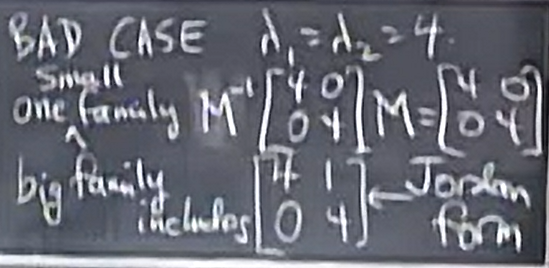 BAD CASE λ₁=λ₂=4.
small
one family M⁻¹ [4 0; 0 4] M = [4 0; 0 4]
^
big family
includes [4 1; 0 4] ← Jordan form